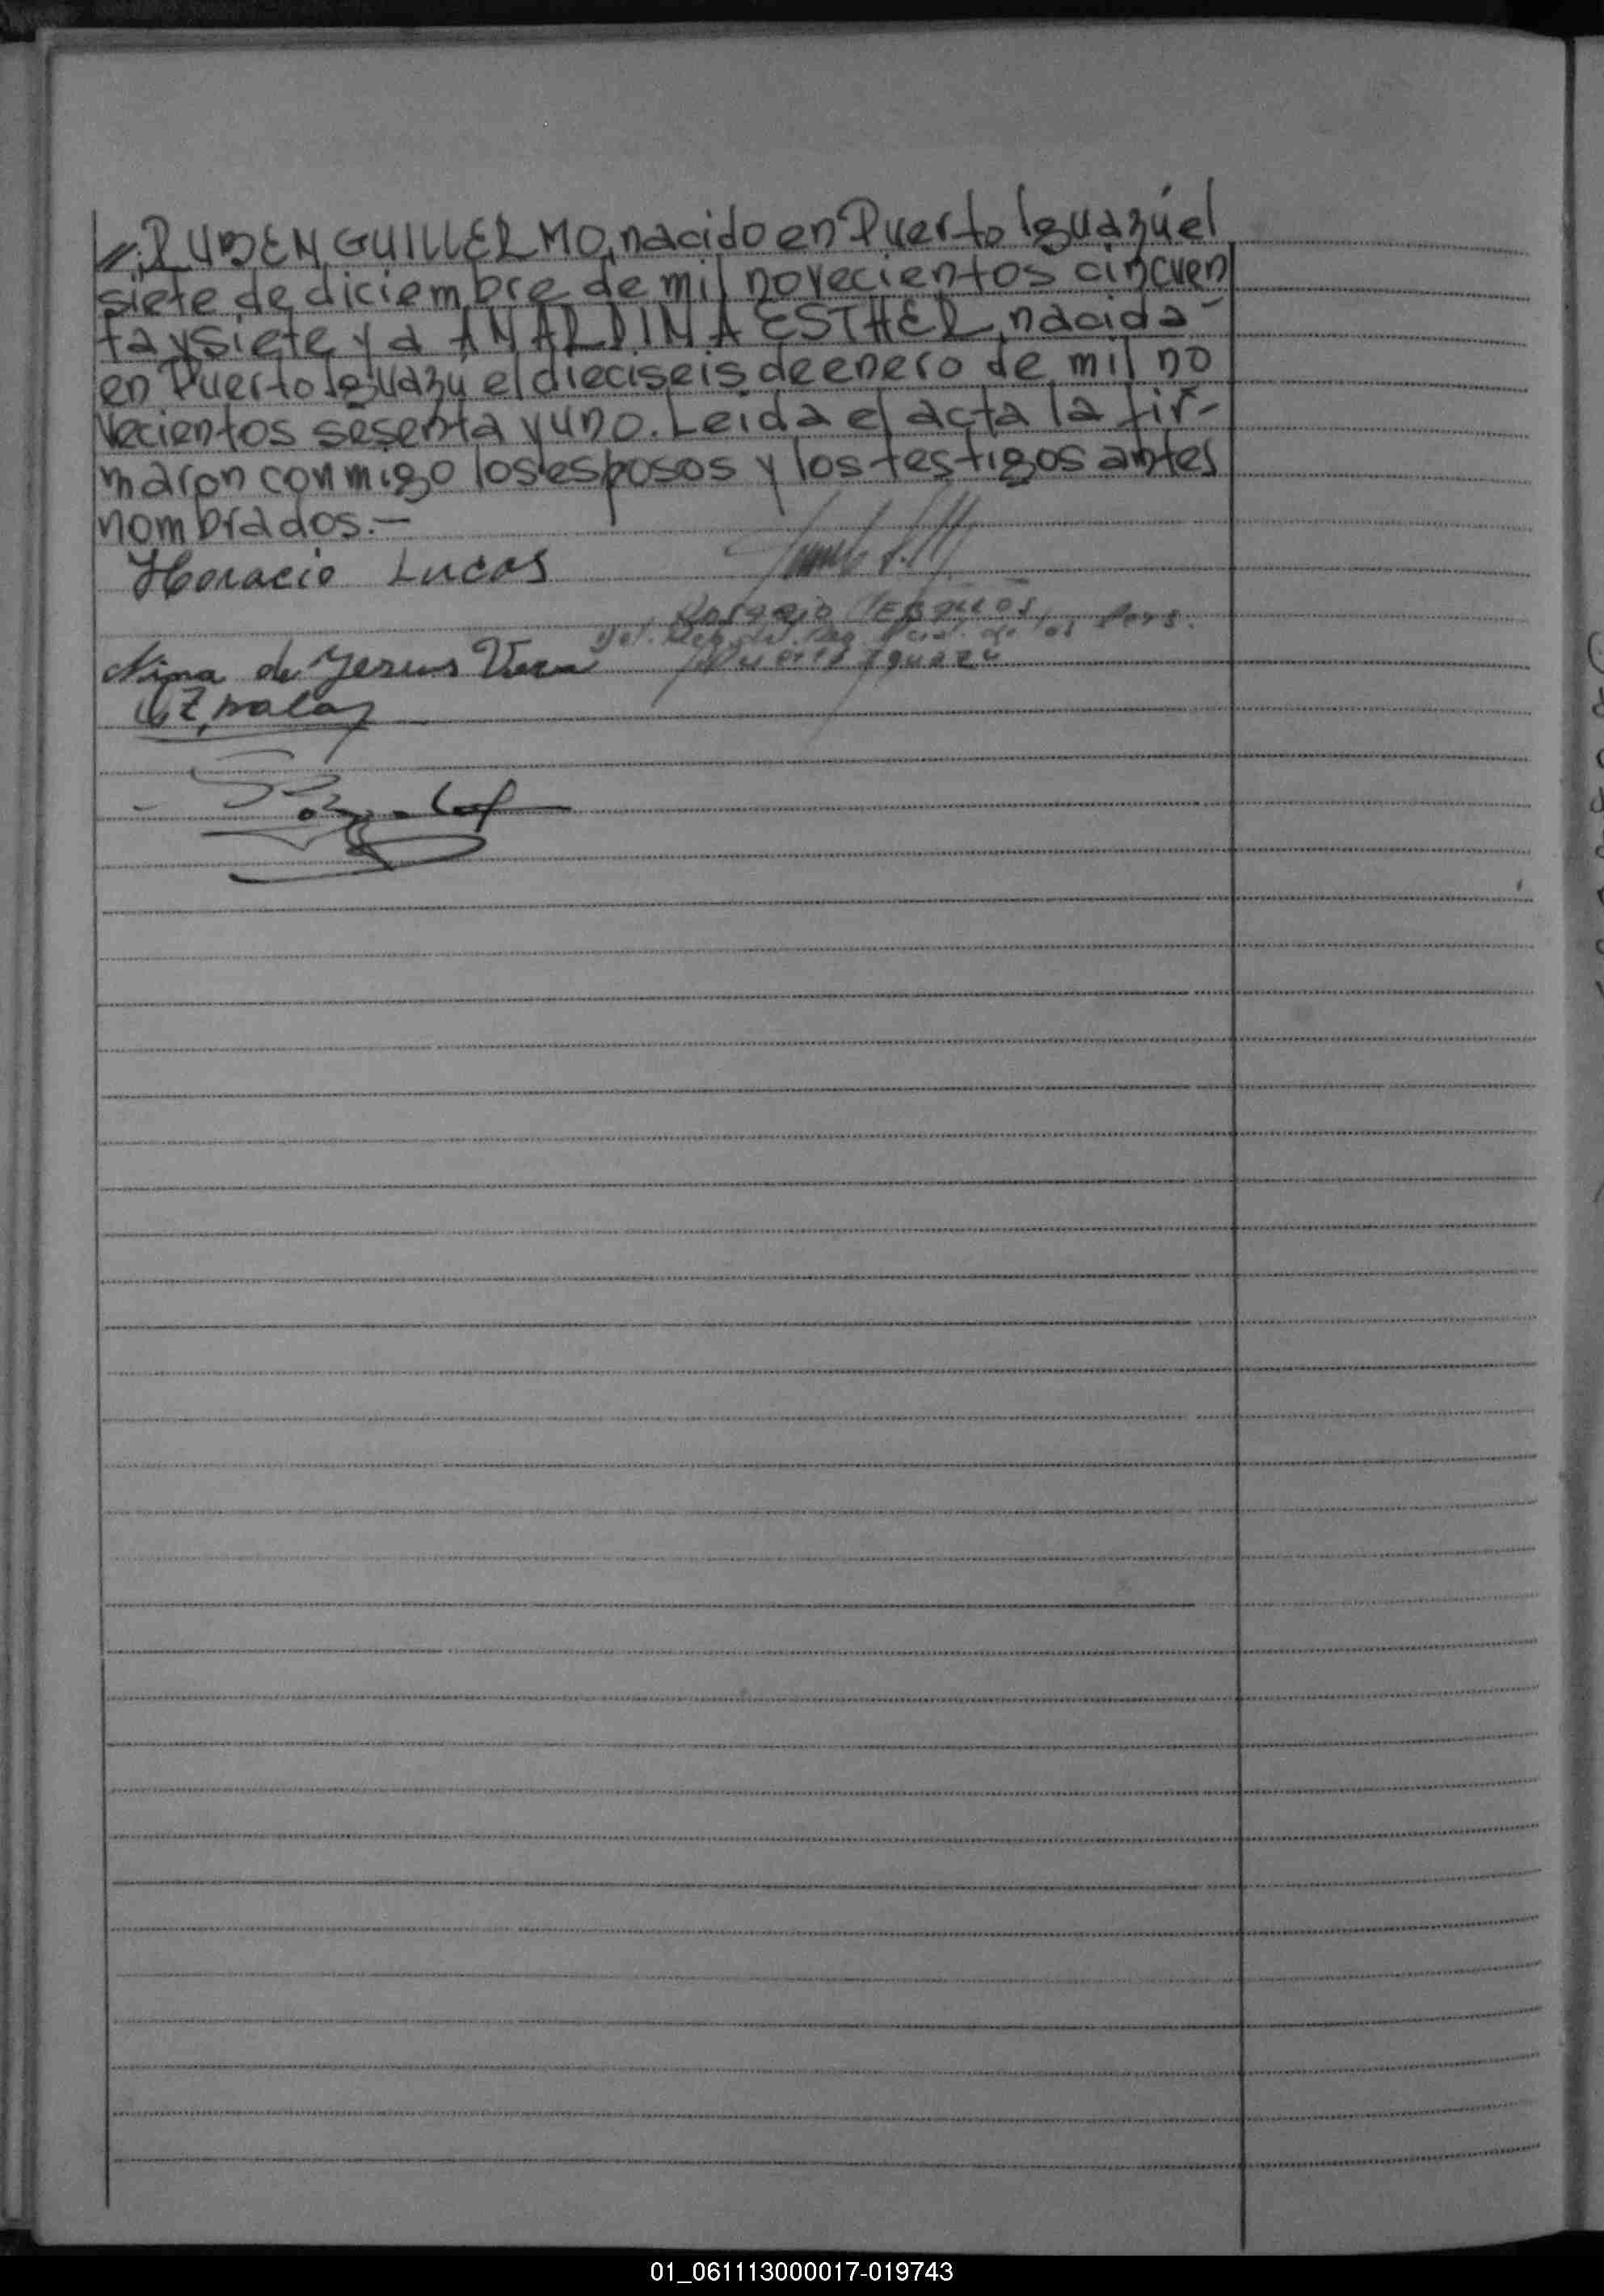 RUBEN GUILLERMO, nacido en Puerto Iguazú el
siete de diciembre de mil novecientos cincuen
ta y siete y a ANARDINA ESTHER, nacida-
en Puerto Iguazú el dieciseis de enero de mil no
vecientos sesenta y uno. Leida el acta la fir-
maron conmigo los esposos y los testigos antes
nombrados.-
Horacio Lucas
de los Pers.
Puerto Iguazú
de Jesus Vera
01_061113000017-019743